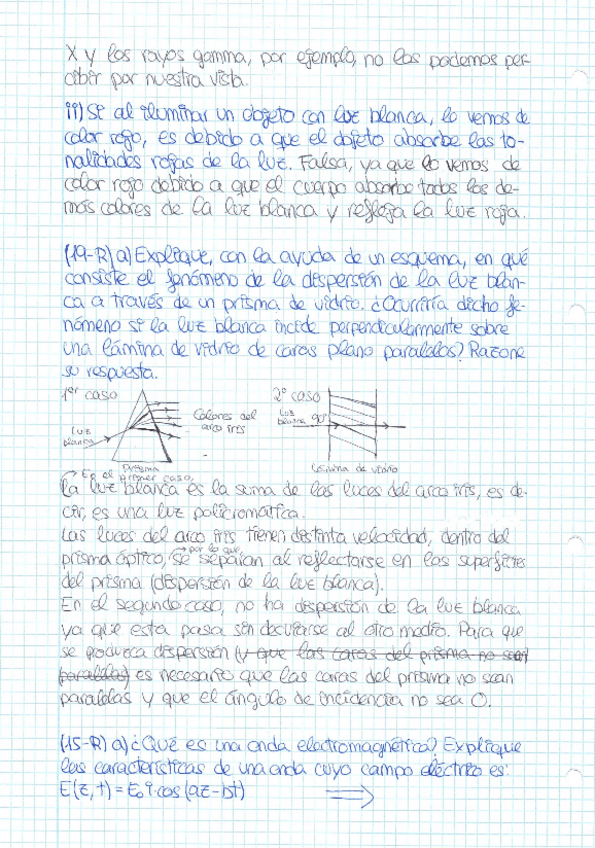 X y los rayos gamma, por ejemplo, no los podemos per-
cibir por nuestra vista.
ii) Si al iluminar un objeto con luz blanca, lo vemos de
color rojo, es debido a que el objeto absorbe las to-
nalidades rojas de la luz. Falsa, ya que lo vemos de
color rojo debido a que el cuerpo absorbe todos los de-
más colores de la luz blanca y refleja la luz roja.
(19-R) a) Explique, con la ayuda de un esquema, en qué
consiste el fenómeno de la dispersión de la luz blan-
ca a través de un prisma de vidrio. ¿Ocurriría dicho fe-
nómeno si la luz blanca incide perpendicularmente sobre
una lámina de vidrio de caras plano paralelas? Razone
su respuesta.
1er caso
Luz
blanca
Prisma
Colores del
arco iris
2º caso
Luz
blanca 90º
Lámina de vidrio
→ En el primer caso,
La luz blanca es la suma de las luces del arco iris, es de-
cir, es una luz policromática.
Las luces del arco iris tienen distinta velocidad, dentro del
→ por lo que
prisma óptico, se separan al reflectarse en las superficies
del prisma (dispersión de la luz blanca).
En el segundo caso, no ha dispersión de la luz blanca
ya que esta pasa sin desviarse al otro medio. Para que
se produzca dispersión (y que las caras del prisma no sean
paralelas) es necesario que las caras del prisma no sean
paralelas y que el ángulo de incidencia no sea 0.
(15-R) a) ¿Qué es una onda electromagnética? Explique
las características de una onda cuyo campo eléctrico es:
E(z,t) = E₀ i cos (az-bt)